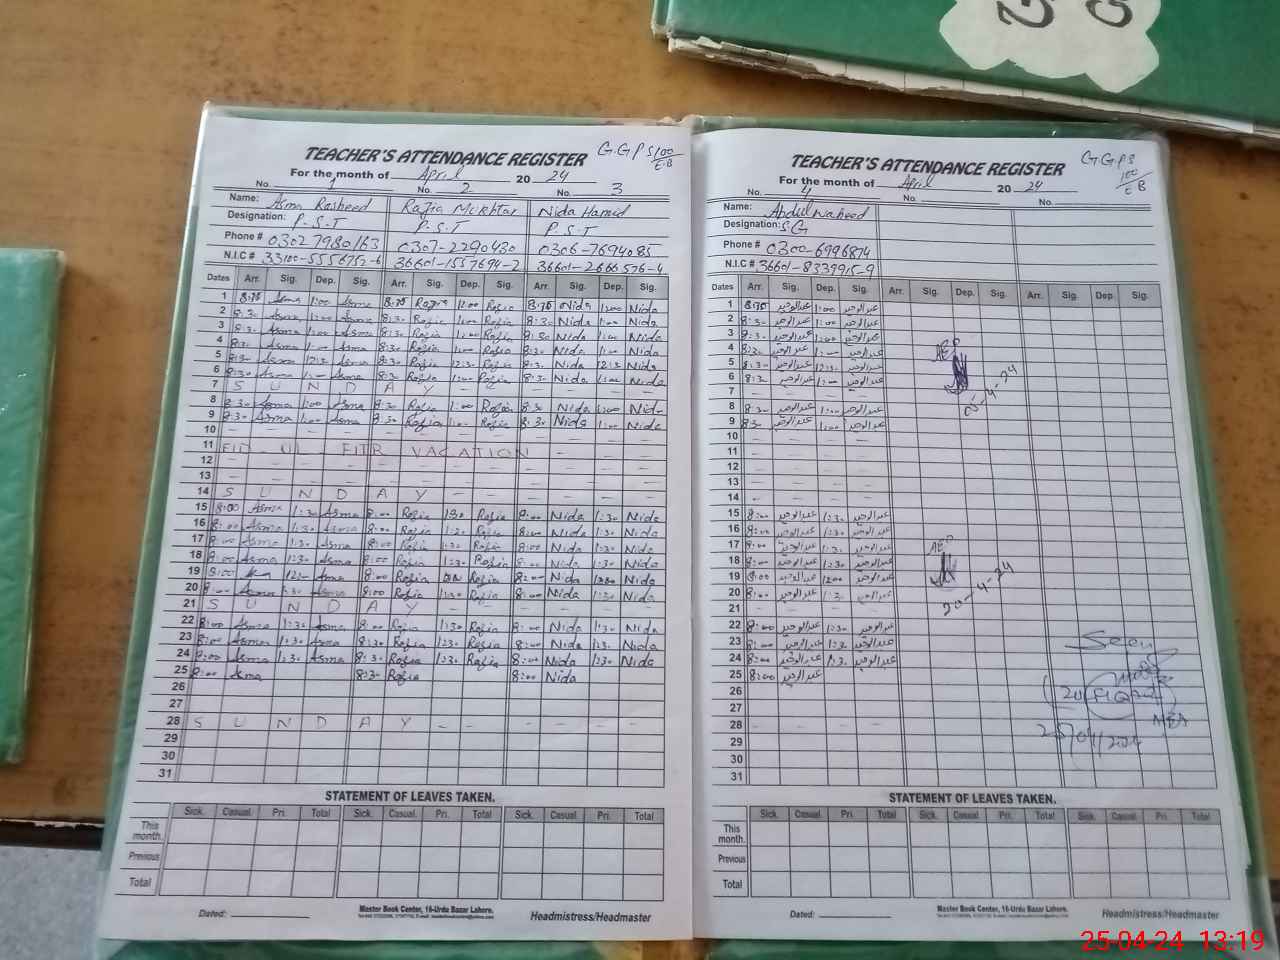 TEACHER'S ATTENDANCE REGISTER G.G.P.S 100/E.B
For the month of April 2024
No. 1 No. 2 No. 3
Name: Asma Rasheed Razia Mukhtar Nida Hamid
Designation: P.S.T P.S.T P.S.T
Phone # 0302 7980163 0307-2290430 0306-7694085
N.I.C # 33100-5556752-6 36601-1557694-2 36601-2666576-4
Dates Arr. Sig. Dep. Sig. Arr. Sig. Dep. Sig. Arr. Sig. Dep. Sig.
1 8:30 Asma 1:00 Asma 8:30 Razia 1:00 Razia 8:30 Nida 1:00 Nida
2 8:30 Asma 1:00 Asma 8:30 Razia 1:00 Razia 8:30 Nida 1:00 Nida
3 8:30 Asma 1:00 Asma 8:30 Razia 1:00 Razia 8:30 Nida 1:00 Nida
4 8:30 Asma 1:00 Asma 8:30 Razia 1:00 Razia 8:30 Nida 1:00 Nida
5 8:30 Asma 12:30 Asma 8:30 Razia 12:30 Razia 8:30 Nida 12:30 Nida
6 8:30 Asma 1:00 Asma 8:30 Razia 1:00 Razia 8:30 Nida 1:00 Nida
7 S U N D A Y
8 8:30 Asma 1:00 Asma 8:30 Razia 1:00 Razia 8:30 Nida 1:00 Nida
9 8:30 Asma 1:00 Asma 8:30 Razia 1:00 Razia 8:30 Nida 1:00 Nida
10
11 EID UL FITR VACATION
12
13
14 S U N D A Y
15 8:00 Asma 1:30 Asma 8:00 Razia 1:30 Razia 8:00 Nida 1:30 Nida
16 8:00 Asma 1:30 Asma 8:00 Razia 1:30 Razia 8:00 Nida 1:30 Nida
17 8:00 Asma 1:30 Asma 8:00 Razia 1:30 Razia 8:00 Nida 1:30 Nida
18 8:00 Asma 1:30 Asma 8:00 Razia 1:30 Razia 8:00 Nida 1:30 Nida
19 8:00 Asma 12:00 Asma 8:00 Razia Razia 8:00 Nida 12:00 Nida
20 8:00 Asma 1:30 Asma 8:00 Razia 1:30 Razia 8:00 Nida 1:30 Nida
21 S U N D A Y
22 8:00 Asma 1:30 Asma 8:00 Razia 1:30 Razia 8:00 Nida 1:30 Nida
23 8:00 Asma 1:30 Asma 8:30 Razia 1:30 Razia 8:00 Nida 1:30 Nida
24 8:00 Asma 1:30 Asma 8:30 Razia 1:30 Razia 8:00 Nida 1:30 Nida
25 8:00 Asma 8:30 Razia 8:00 Nida
26
27
28 S U N D A Y
29
30
31
STATEMENT OF LEAVES TAKEN.
Sick. Casual. Pri. Total Sick. Casual. Pri. Total Sick. Casual Pri. Total
This month.
Previous
Total
Dated: Master Book Center, 16-Urdu Bazar Lahore. Headmistress/Headmaster
TEACHER'S ATTENDANCE REGISTER G.G.P.S 100/E B
For the month of April 2024
No. 4 No. No.
Name: Abdul waheed
Designation: SG
Phone # 0300-6996874
N.I.C # 36601-8339915-9
Dates Arr. Sig. Dep. Sig. Arr. Sig. Dep. Sig. Arr. Sig. Dep. Sig.
1 8:30 عبدالوحید 1:00 عبدالوحید
2 8:30 عبدالوحید 1:00 عبدالوحید
3 8:30 عبدالوحید 1:00 عبدالوحید
4 8:30 عبدالوحید 1:00 عبدالوحید AEO
5 8:30 عبدالوحید 12:30 عبدالوحید
6 8:30 عبدالوحید 1:00 عبدالوحید 05-4-24
7
8 8:30 عبدالوحید 1:00 عبدالوحید
9 8:30 عبدالوحید 1:00 عبدالوحید
10
11
12
13
14
15 8:00 عبدالوحید 1:30 عبدالوحید
16 8:00 عبدالوحید 1:30 عبدالوحید
17 8:00 عبدالوحید 1:30 عبدالوحید AEO
18 8:00 عبدالوحید 1:30 عبدالوحید
19 8:00 عبدالوحید 12:00 عبدالوحید
20 8:00 عبدالوحید 1:30 عبدالوحید 20-4-24
21
22 8:00 عبدالوحید 1:30 عبدالوحید
23 8:00 عبدالوحید 1:30 عبدالوحید Seen
24 8:00 عبدالوحید 1:30 عبدالوحید
25 8:00 عبدالوحید
26
27 MEA
28 25/04/2024
29
30
31
STATEMENT OF LEAVES TAKEN.
Sick. Casual. Pri. Total Sick. Casual Pri. Total Sick. Casual Pri. Total
This month.
Previous
Total
Dated: Master Book Center, 16-Urdu Bazar Lahore. Headmistress/Headmaster
25-04-24 13:19